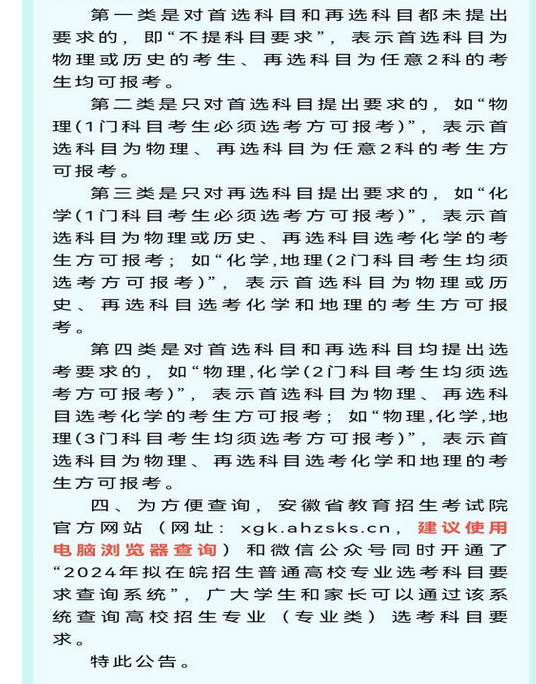 第一类是对首选科目和再选科目都未提出
要求的，即“不提科目要求”，表示首选科目为
物理或历史的考生、再选科目为任意2科的考
生均可报考。
第二类是只对首选科目提出要求的，如“物
理(1门科目考生必须选考方可报考)”，表示首
选科目为物理、再选科目为任意2科的考生方
可报考。
第三类是只对再选科目提出要求的，如“化
学(1门科目考生必须选考方可报考)”，表示首
选科目为物理或历史、再选科目选考化学的考
生方可报考；如“化学,地理(2门科目考生均须
选考方可报考)”，表示首选科目为物理或历
史、再选科目选考化学和地理的考生方可报
考。
第四类是对首选科目和再选科目均提出选
考要求的，如“物理,化学(2门科目考生均须选
考方可报考)”，表示首选科目为物理、再选科
目选考化学的考生方可报考；如“物理,化学,地
理(3门科目考生均须选考方可报考)”，表示首
选科目为物理、再选科目选考化学和地理的考
生方可报考。
四、为方便查询，安徽省教育招生考试院
官方网站（网址：xgk.ahzsks.cn，建议使用
电脑浏览器查询）和微信公众号同时开通了
“2024年拟在皖招生普通高校专业选考科目要
求查询系统”，广大学生和家长可以通过该系
统查询高校招生专业（专业类）选考科目要
求。
特此公告。